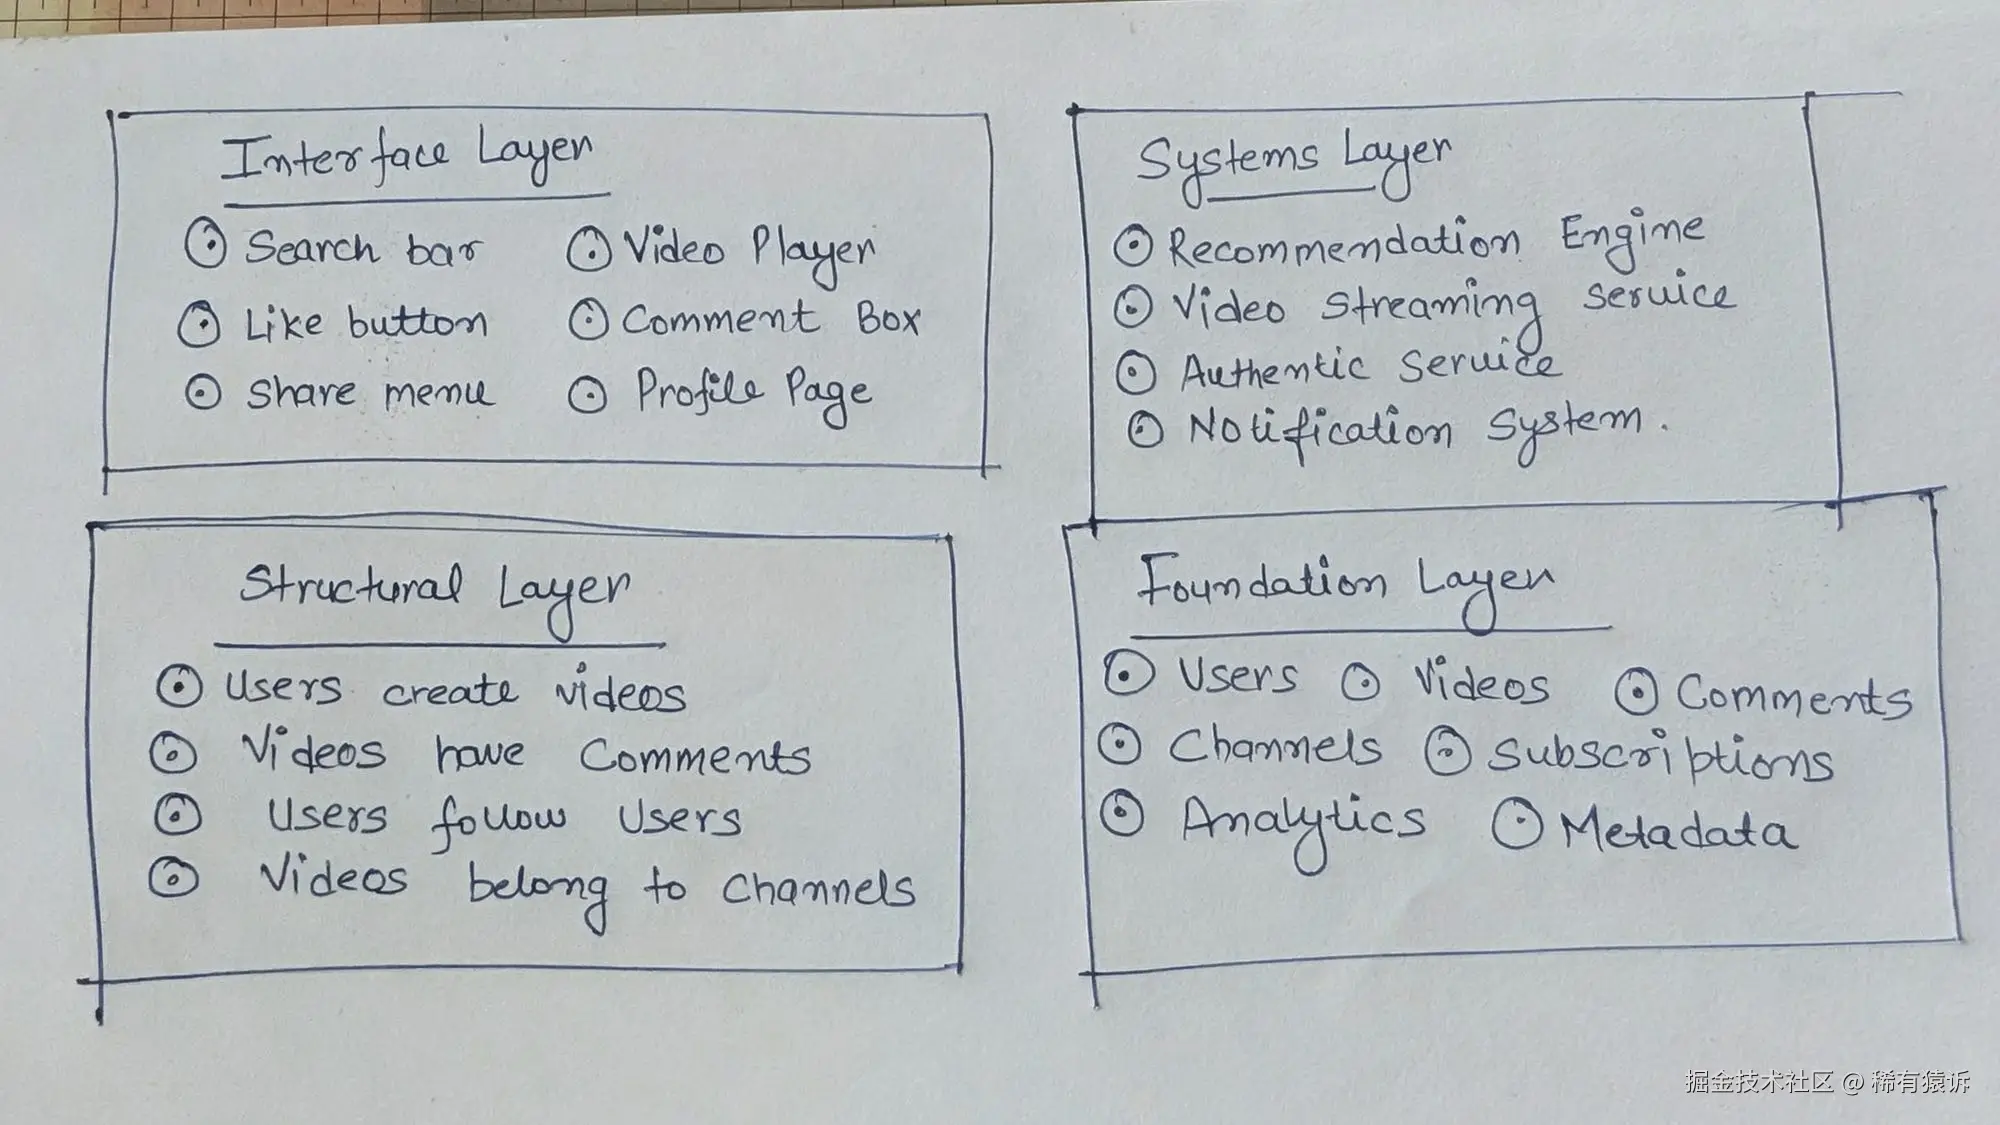 Interface Layer
Search bar
Video Player
Like button
Comment Box
Share menu
Profile Page
Systems Layer
Recommendation Engine
Video Streaming Service
Authentic Service
Notification System.
Structural Layer
Users create videos
Videos have Comments
Users follow Users
Videos belong to channels
Foundation Layer
Users
Videos
Comments
Channels
Subscriptions
Analytics
Metadata
掘金技术社区 @ 稀有猿诉